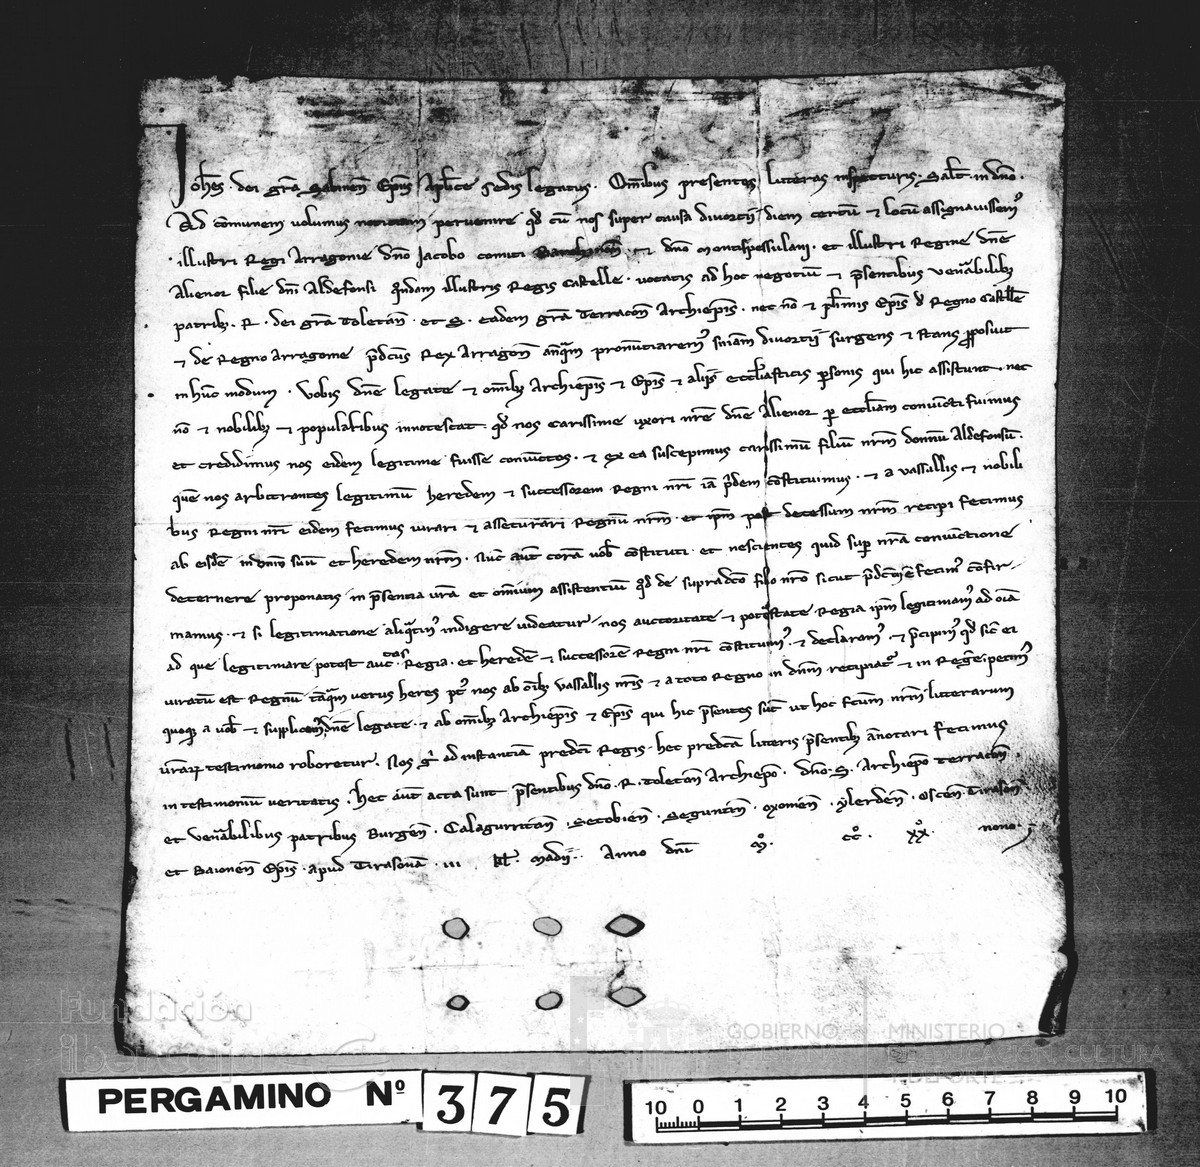 Joħes dei gr̄a Sabineñ Ep̄us Ap̄lice sedis legatus. Om̄ibus presentes litteras inspecturis. Salt̄. in dn̄o.
Ad com̄unem volumus noticiam pervenire qd̄ cū nos super causa divortii diem certū ⁊ locū assignavissem⁹
illustri Regi Arragonie dn̄o Jacobo comiti ⁊ dn̄o Montispessulani. et illustri Regine dn̄e
Alienor filie dn̄i Aldefonsi qn̄dam illustris Regis Castelle. vocatis ad hoc negotiū ⁊ p̄sentibus venabilib;
patrib;. R. dei gr̄a Toletan̄. et S. eadem gr̄a Terracoñ Archiep̄is. nec nō ⁊ Ep̄is de Regno Castelle
⁊ de Regno Arragonie p̄dcūs Rex Arragoñ anq̄m pronūtiarem⁹ sn̄iam divortii surgens ⁊ stans p̄posuit
in hūc modum. Vobis dn̄e legate ⁊ om̄ib; Archiep̄is ⁊ Ep̄is ⁊ aliis eccl̄iasticis p̄sonis qui hic assistunt. nec
nō ⁊ nobilib; ⁊ popularibus innotescat. qd̄ nos carissime uxori nr̄e dn̄e Alienor p̄ eccl̄iam coniūcti fuimus
et credidimus nos eidem legitime fuisse coniūctos. ⁊ ex ea suscepimus carissimū filiū nr̄m donnū Aldefonsū.
quē nos arbitrantes legitimū heredem ⁊ successorem Regni nr̄i iā p̄dem cōstituimus. ⁊ a vassallis ⁊ nobili
bus Regni nr̄i eidem fecimus iurari ⁊ assecurari Regnū nr̄m. et ip̄m post decessum nr̄m recipi fecimus
ab eisdē in dn̄m suū et heredem nr̄m. Nūc aūt corā vob̄ cōstituti. et nescientes quid sup̄ nr̄a coniūctione
decernere proponatis in p̄sentia vr̄a et om̄ium assistentiū qd̄ de supradc̄o filio nr̄o sicut fecim⁹ cōfir-
mamus. ⁊ si legitimatione aliq̄tin⁹ indigere videatur nos auctoritate ⁊ potestate Regia ip̄m legitimam⁹ ad oīa
ad que legitimare potest auctas Regia. et heredē ⁊ successorē Regni nr̄i cōstituim⁹. ⁊ declaram⁹. ⁊ p̄cipim⁹ qd̄ sic̄ ei
iuratū est Regnū tāq̄m verus heres p⁹ nos ab oīb; vassallis nr̄is ⁊ a toto Regno in dn̄m recipiat᷑ ⁊ in petim⁹
quoq; a vob̄ ⁊ dn̄e legate. ⁊ ab om̄ib; Archiep̄is ⁊ Ep̄is qui hic p̄sentes sūt ut hoc fc̄um nr̄m litterarum
vr̄aꝝ testimonio roboretur. Nos g̊ ad instanciā predc̄i Regis. hec predc̄a literis p̄sentib; ānotari fecimus
in testimoniū veritatis. Hec aūt acta sunt p̄sentibus dn̄o. R. Toletan̄ Archiep̄o. dn̄o. S. Archiep̄o Terracoñ.
et venabilibus patribus Burgeñ. Calagurritañ. Secobieñ. Seguntiñ. Oxomeñ. Ylerdeñ. Osceñ. Tirasoñ
et Baioneñ Ep̄is. apud Tirasonā. iii kl̄. Madii. Anno dn̄i M̊. cc̊. xx̊. nono.
PERGAMINO Nº 375
10 0 1 2 3 4 5 6 7 8 9 10
Fundación
ibercaja
GOBIERNO
DE ESPAÑA
MINISTERIO
DE EDUCACIÓN, CULTURA
Y DEPORTE